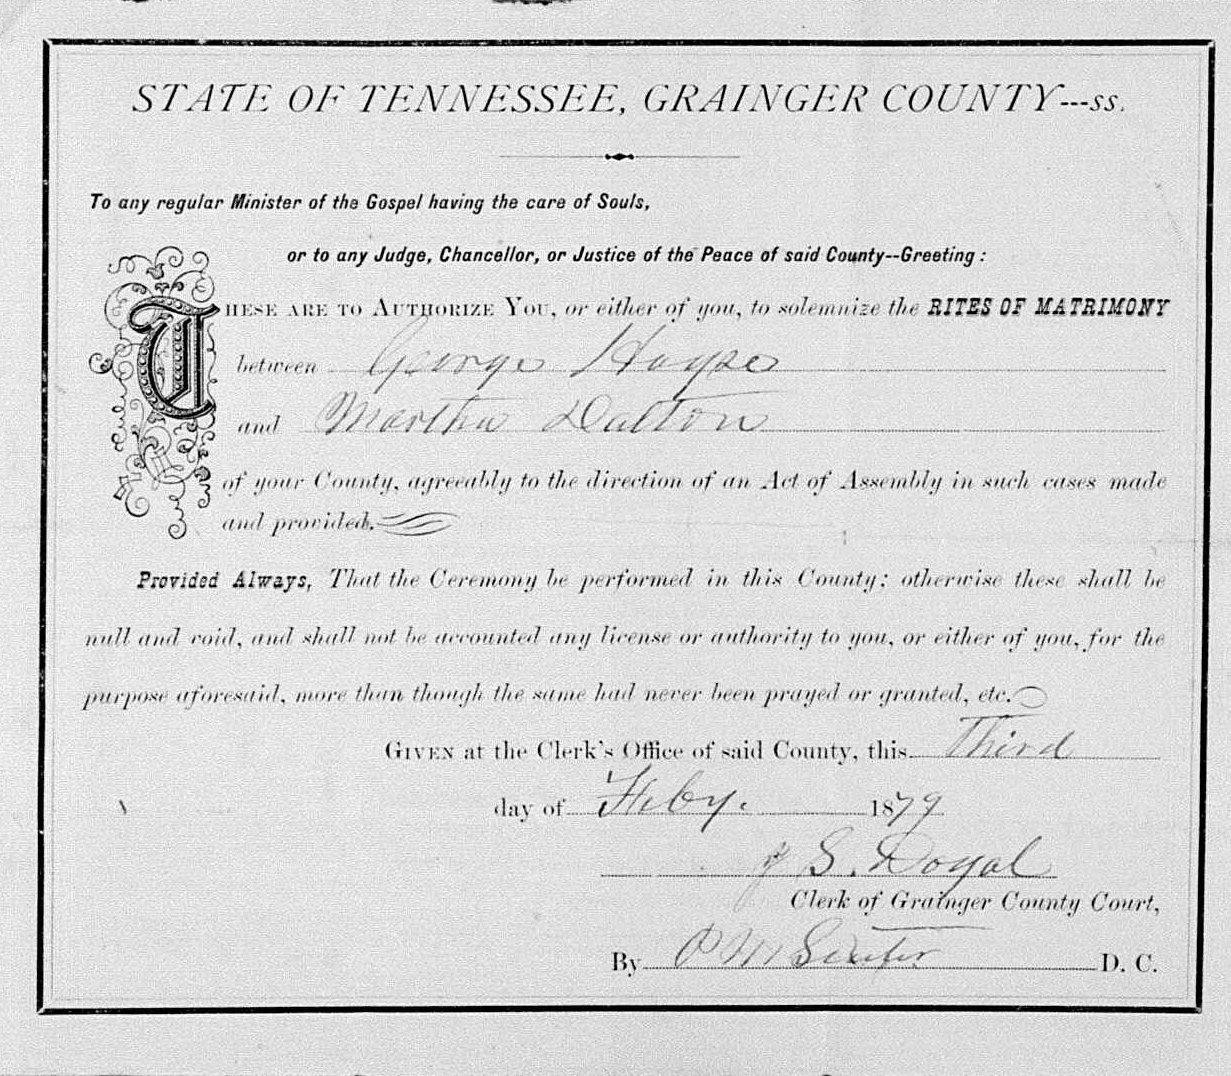 STATE OF TENNESSEE, GRAINGER COUNTY---ss.
To any regular Minister of the Gospel having the care of Souls,
or to any Judge, Chancellor, or Justice of the Peace of said County--Greeting:
THESE ARE TO AUTHORIZE YOU, or either of you, to solemnize the RITES OF MATRIMONY
between George Hayse
and Martha Dalton
of your County, agreeably to the direction of an Act of Assembly in such cases made
and provided.
Provided Always, That the Ceremony be performed in this County: otherwise these shall be
null and void, and shall not be accounted any license or authority to you, or either of you, for the
purpose aforesaid, more than though the same had never been prayed or granted, etc.
GIVEN at the Clerk's Office of said County, this Third
day of Feby. 1879
S. Doyal
Clerk of Grainger County Court,
By P M Senter D. C.